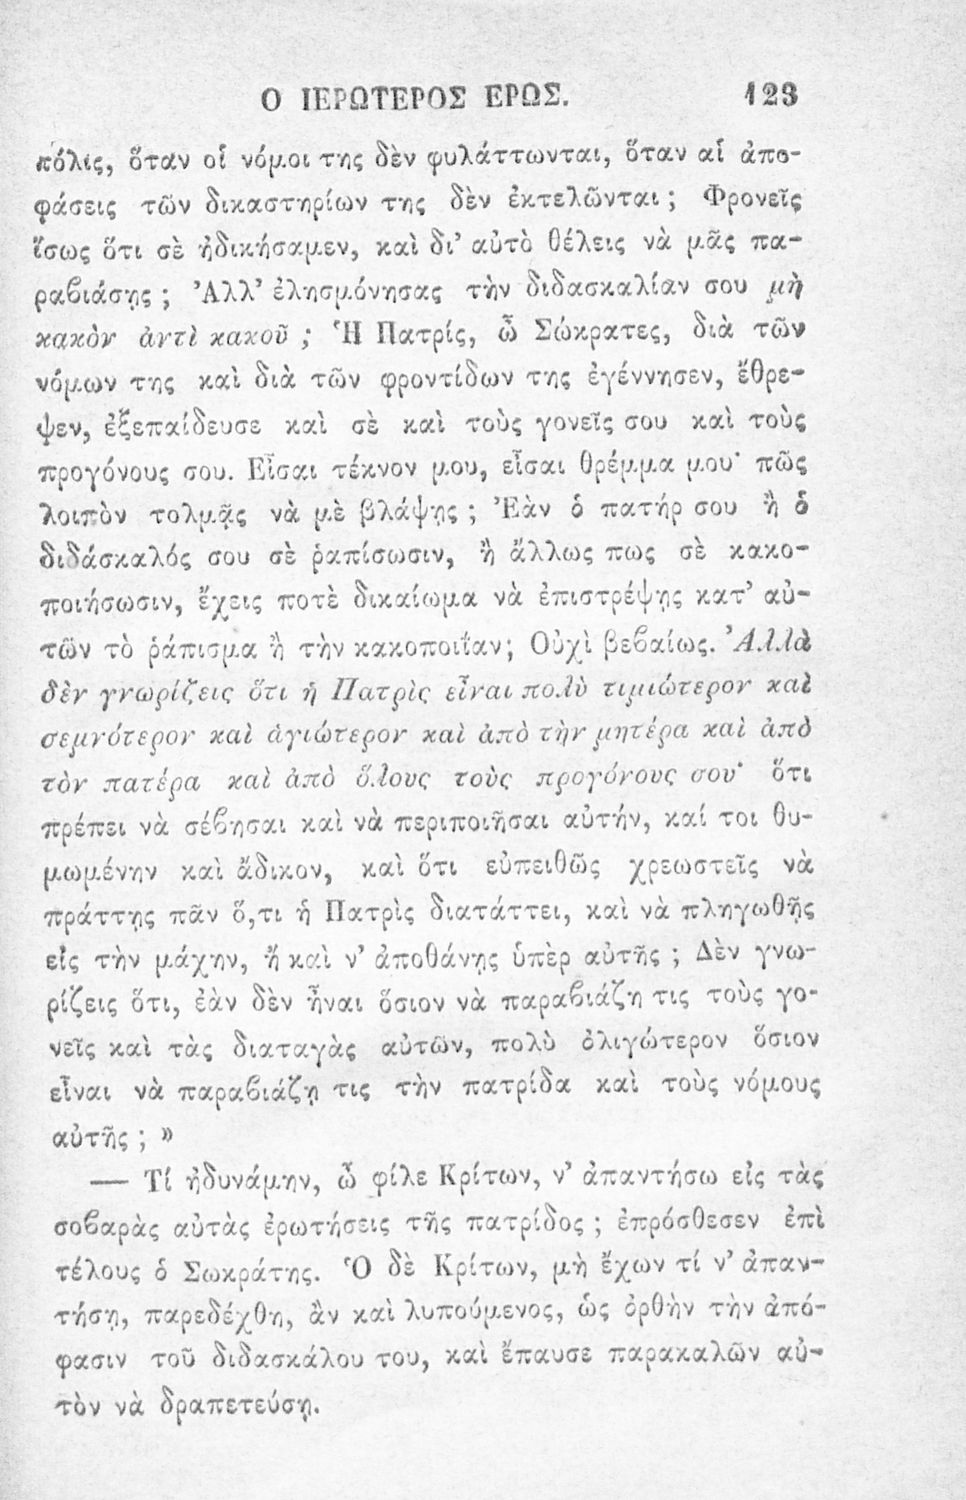 Ο ΙΕΡΩΤΕΡΟΣ ΕΡΩΣ. 123
πόλις, ὅταν οἱ νόμοι της δὲν φυλάττωνται, ὅταν αἱ ἀπο-
φάσεις τῶν δικαστηρίων της δὲν ἐκτελῶνται ; Φρονεῖς
ἴσως ὅτι σὲ ἠδικήσαμεν, καὶ δι’ αὐτὸ θέλεις νὰ μᾶς πα-
ραβιάσῃς ; Ἀλλ’ ἐλησμόνησας τὴν διδασκαλίαν σου μὴ
κακὸν ἀντὶ κακοῦ ; Ἡ Πατρίς, ὦ Σώκρατες, διὰ τῶν
νόμων της καὶ διὰ τῶν φροντίδων της ἐγέννησεν, ἔθρε-
ψεν, ἐξεπαίδευσε καὶ σὲ καὶ τοὺς γονεῖς σου καὶ τοὺς
προγόνους σου. Εἶσαι τέκνον μου, εἶσαι θρέμμα μου· πῶς
λοιπὸν τολμᾷς νὰ μὲ βλάψῃς ; Ἐὰν ὁ πατήρ σου ἢ ὁ
διδάσκαλός σου σὲ ῥαπίσωσιν, ἢ ἄλλως πως σὲ κακο-
ποιήσωσιν, ἔχεις ποτὲ δικαίωμα νὰ ἐπιστρέψῃς κατ’ αὐ-
τῶν τὸ ῥάπισμα ἢ τὴν κακοποιΐαν; Οὐχὶ βεβαίως. Ἀλλὰ
δὲν γνωρίζεις ὅτι ἡ Πατρὶς εἶναι πολὺ τιμιώτερον καὶ
σεμνότερον καὶ ἁγιώτερον καὶ ἀπὸ τὴν μητέρα καὶ ἀπὸ
τὸν πατέρα καὶ ἀπὸ ὅλους τοὺς προγόνους σου· ὅτι
πρέπει νὰ σέβησαι καὶ νὰ περιποιῆσαι αὐτήν, καί τοι θυ-
μωμένην καὶ ἄδικον, καὶ ὅτι εὐπειθῶς χρεωστεῖς νὰ
πράττῃς πᾶν ὅ,τι ἡ Πατρὶς διατάττει, καὶ νὰ πληγωθῇς
εἰς τὴν μάχην, ἢ καὶ ν’ ἀποθάνῃς ὑπὲρ αὐτῆς ; Δὲν γνω-
ρίζεις ὅτι, ἐὰν δὲν ἦναι ὅσιον νὰ παραβιάζῃ τις τοὺς γο-
νεῖς καὶ τὰς διαταγὰς αὐτῶν, πολὺ ὀλιγώτερον ὅσιον
εἶναι νὰ παραβιάζῃ τις τὴν πατρίδα καὶ τοὺς νόμους
αὐτῆς ; »
— Τί ἠδυνάμην, ὦ φίλε Κρίτων, ν’ ἀπαντήσω εἰς τὰς
σοβαρὰς αὐτὰς ἐρωτήσεις τῆς πατρίδος ; ἐπρόσθεσεν ἐπὶ
τέλους ὁ Σωκράτης. Ὁ δὲ Κρίτων, μὴ ἔχων τί ν’ ἀπαν-
τήσῃ, παρεδέχθη, ἂν καὶ λυπούμενος, ὡς ὀρθὴν τὴν ἀπό-
φασιν τοῦ διδασκάλου του, καὶ ἔπαυσε παρακαλῶν αὐ-
τὸν νὰ δραπετεύσῃ.